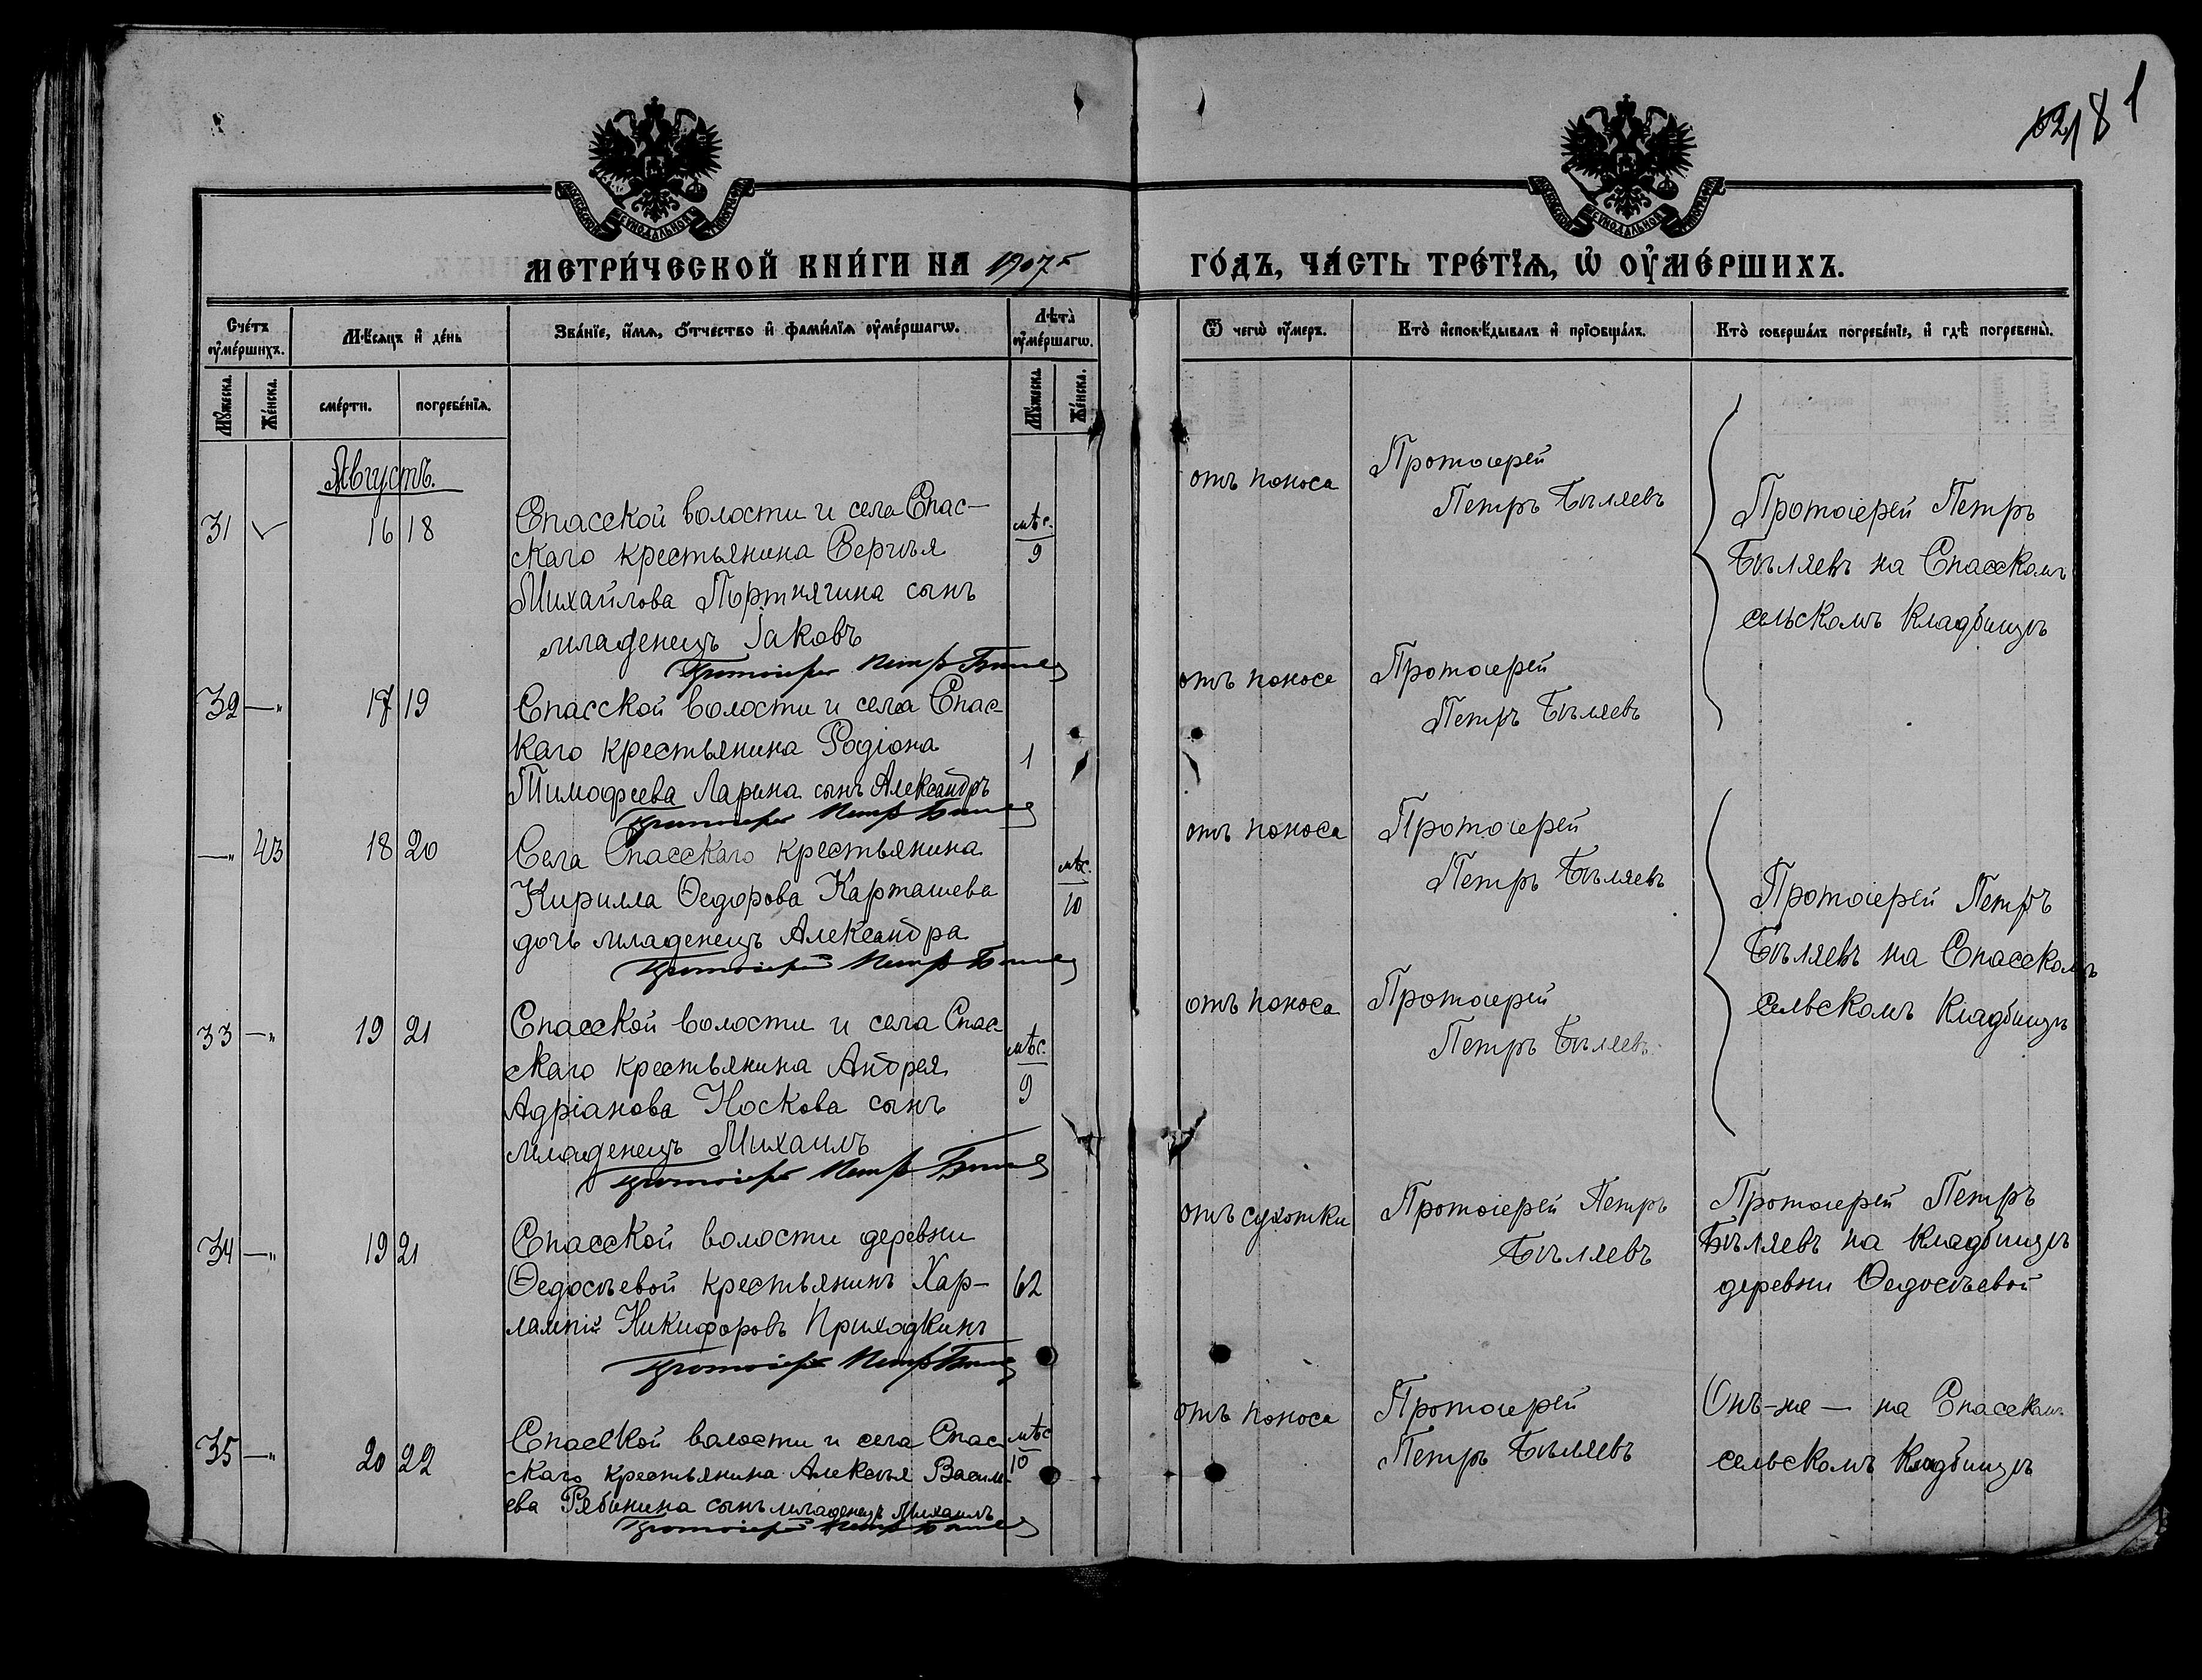 521 81
МЕТРИ́ЧЕСКОЙ КНИ́ГИ НА 1907 ГО́ДЪ, ЧА́СТЬ ТРЕ́ТЇѦ, Ѡ҆ ОУ҆МЕ́РШИХЪ.
Сче́тъ оу҆ме́ршихъ.
Мѣ́сѧцъ и҆ де́нь
Зва́нїе, и҆́мѧ, ѻ҆́тчество и҆ фами́лїѧ оу҆ме́ршагѡ.
Лѣ̀та̀ оу҆ме́ршагѡ.
Ѿ чегѡ̀ оу҆́меръ.
Кто̀ и҆сповѣ́дывалъ и҆ прїѻбща́лъ.
Кто̀ соверша́лъ погребе́нїе, и҆ гдѣ̀ погребены̀.
Мꙋ́жеска.
Же́нска.
сме́рти.
погребе́нїѧ.
Мꙋ́жеска.
Же́нска.
Августъ.
31 16 18
Спасской волости и села Спас-
скаго крестьянина Сергѣя
Михайлова Портнягина сынъ
младенецъ Іаковъ
Протоіерей Петръ Бѣляевъ
мѣс.
9
отъ поноса
Протоіерей
Петръ Бѣляевъ
Протоіерей Петръ
Бѣляевъ на Спасскомъ
сельскомъ кладбищѣ
32 —„ 17 19
Спасской волости и села Спас-
каго крестьянина Родіона
Тимофеева Ларина сынъ Александръ
Протоіерей Петръ Бѣляевъ
1
отъ поноса
Протоіерей
Петръ Бѣляевъ
—„ 43 18 20
Села Спасскаго крестьянина
Кирилла Ѳедорова Карташева
дочь младенецъ Александра
Протоіерей Петръ Бѣляевъ
мѣс.
10
отъ поноса
Протоіерей
Петръ Бѣляевъ
Протоіерей Петръ
Бѣляевъ на Спасскомъ
сельскомъ кладбищѣ
33 —„ 19 21
Спасской волости и села Спас
скаго крестьянина Андрея
Адріанова Носкова сынъ
младенецъ Михаилъ
Протоіерей Петръ Бѣляевъ
мѣс.
9
отъ поноса
Протоіерей
Петръ Бѣляевъ.
34 —„ 19 21
Спасской волости деревни
Ѳедосѣевой крестьянинъ Хар-
лампій Никифоровъ Приходкинъ
Протоіерей Петръ Бѣляевъ
62
отъ сухотки
Протоіерей Петръ
Бѣляевъ
Протоіерей Петръ
Бѣляевъ на кладбищѣ
деревни Ѳедосѣевой
35 —„ 20 22
Спасской волости и села Спас
скаго крестьянина Алексѣя Василь-
ева Рябинина сынъ младенецъ Михаилъ
Протоіерей Петръ Бѣляевъ
мѣс
10
отъ поноса
Протоіерей
Петръ Бѣляевъ
Онъ-же — на Спасскомъ
сельскомъ кладбищѣ